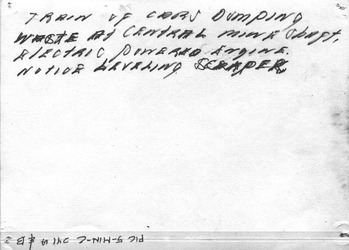 TRAIN OF CARS DUMPING
WASTE AT CENTRAL MINE Shaft,
ELECTRIC POWERED ENGINE.
NOTICE LEVELING SCRAPER
PIC 5-MIN-C